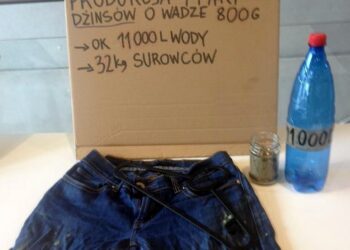 PRODUKCJA 1 PARY
DŻINSÓW O WADZE 800G
→ OK 11000 L WODY
→ 32kg SUROWCÓW
11000